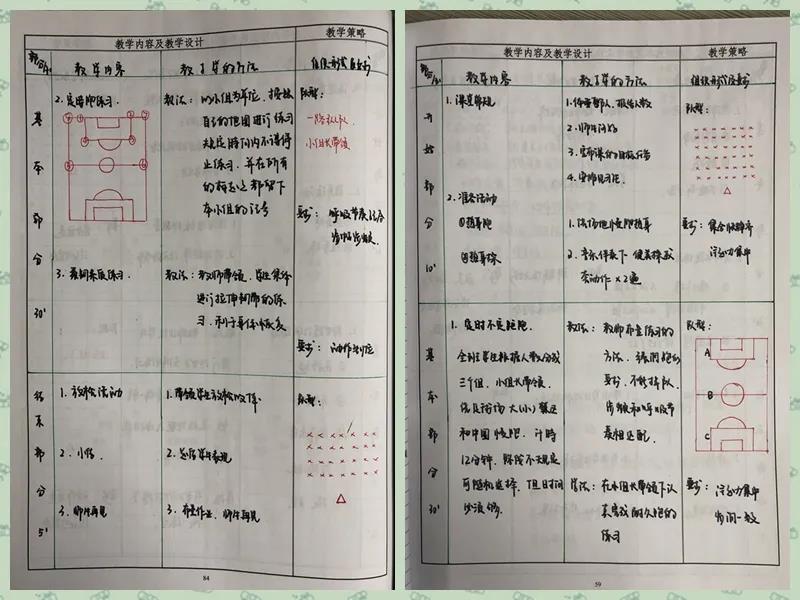 教学内容及教学设计
教学策略
部分
教学内容
教与学的方法
组织形式及要求
2. 定时跑练习.
教法: 以小组为单位, 按照
自己的范围进行练习
规定时间内不得停
止练习, 并在所有
的标志上都留下
本小组的记号
队形:
一路纵队
小组长带领
要求: 呼吸节奏
基
本
部
分
30'
3. 柔韧素质练习.
教法: 教师带领, 学生集体
进行拉伸韧带的练
习, 利于身体恢复
要求: 动作到位
结
束
部
分
5'
1. 放松活动
1. 带领学生放松
2. 小结
2. 总结学生表现
3. 师生再见
3. 布置作业, 师生再见
队形:
84
教学内容及教学设计
教学策略
部分
教学内容
教与学的方法
组织形式及要求
开
始
部
分
10'
1. 课堂常规
1. 体委整队, 报告人数
2. 师生问好
3. 宣布课的目标任务
4. 安排见习生.
队形:
2. 准备活动
①热身跑
②热身操
1. 绕场地慢跑热身
2. 音乐伴奏下
类动作×2遍
要求: 集合快静齐
注意力集中
基
本
部
分
30'
1. 定时不定距跑.
全班学生根据人数分成
三个组, 小组长带领.
依次沿场大(小)禁区
和中圈慢跑. 计时
12分钟. 路线不规定
可随机选择, 但时间
必须够.
教法: 教师布置练习的
方法, 强调跑的
要求, 不能掉队.
步频和呼吸节
奏相匹配.
学法: 在小组长带领下认
真完成耐久跑的
练习
队形:
A
B
C
要求: 注意力集中
步调一致
59